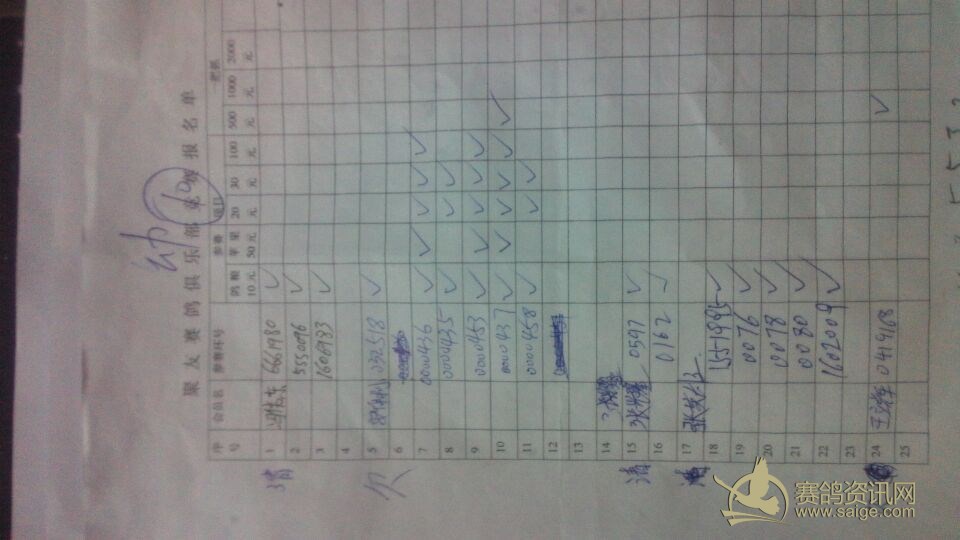 幼
聚友赛鸽俱乐部 赛报名单
序号 会员名 参赛环号 参赛项目 一把抓
鸽粮10元 苹果50元 20元 30元 100元 500元 1000元 2000元
清 1 6661980 ✓
2 5550096 ✓
3 1600983 ✓
4
欠 5 032518 ✓
6
7 0000436 ✓ ✓ ✓ ✓ ✓
8 0000435 ✓ ✓ ✓
9 0000453 ✓ ✓ ✓ ✓ ✓
10 0000437 ✓ ✓ ✓ ✓ ✓ ✓
11 0000458 ✓ ✓ ✓
12
13
14
清 15 0597 ✓
16 0162 ✓
17
18 1551995 ✓
19 0076 ✓
20 0078 ✓
21 0080 ✓
22 1602009 ✓
23
24 041968 ✓
25
553
赛鸽资讯网
www.saige.com